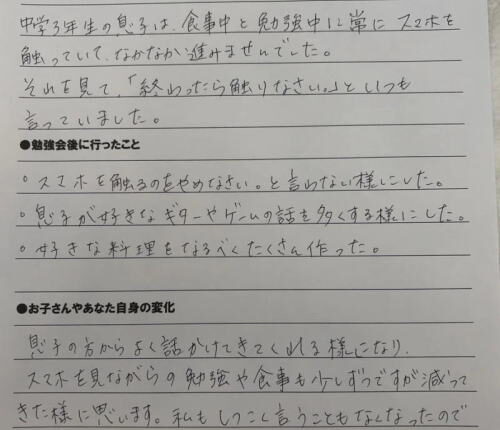 中学3年生の息子は、食事中と勉強中に常にスマホを
触っていて、なかなか進みませんでした。
それを見て、「終わったら触りなさい。」といつも
言っていました。
●勉強会後に行ったこと
◦スマホを触るのをやめなさい。と言わない様にした。
◦息子が好きなギターやゲームの話を多くする様にした。
◦好きな料理をなるべくたくさん作った。
●お子さんやあなた自身の変化
息子の方からよく話かけてきてくれる様になり、
スマホを見ながらの勉強や食事も少しずつですが減って
きた様に思います。私もしつこく言うこともなくなったので